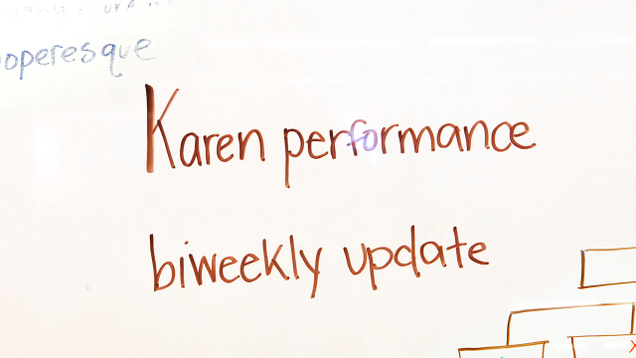 operesque
Karen performance
biweekly update